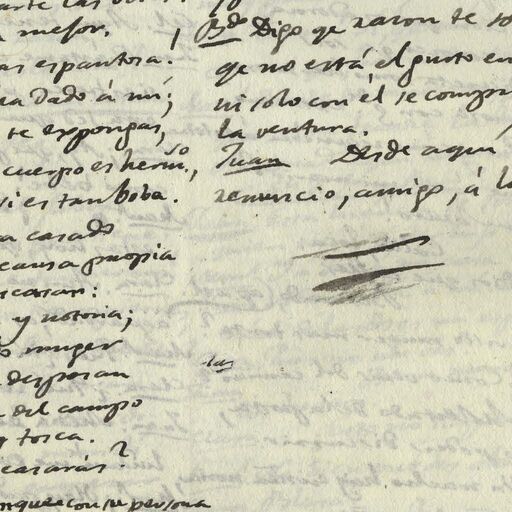 mejor.
as espantosa.
ea dado á mi;
te expongas,
cuerpo es hermso,
si es tan boba.
a casado
causa propia
casar:
y notoria;
muger
desposan
a del campo
y tosca.
casarás?
con su persona
Bdo Digo qe razon te so
qe no está el gusto en
ni solo con él se compr
la ventura.
Juan Desde aquí,
renuncio, amigo, á l